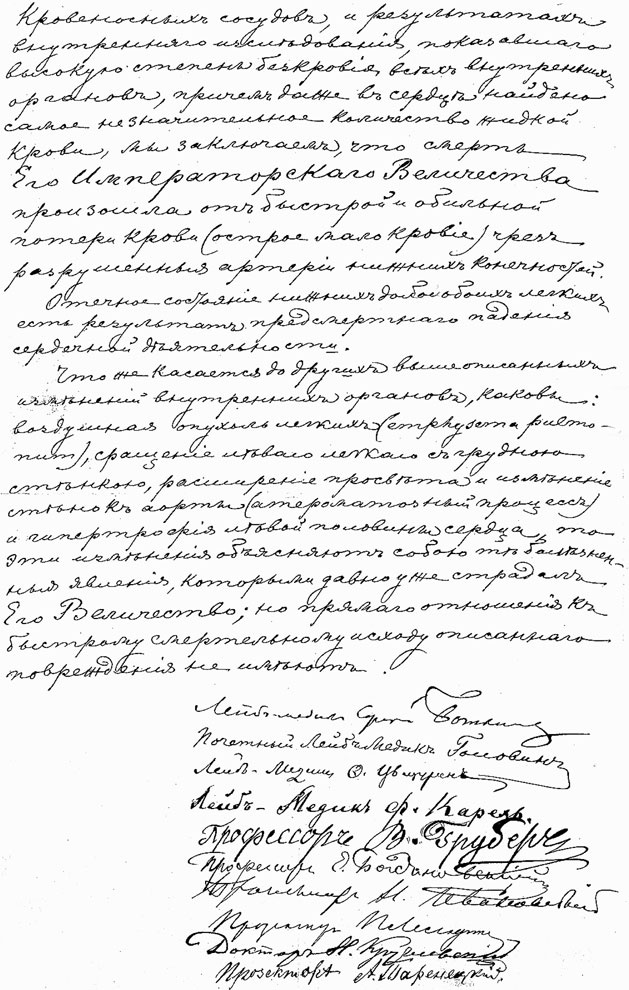 Кровеносныхъ сосудовъ, и результатахъ
внутренняго изслѣдованія, показавшаго
высокую степень безкровія всѣхъ внутреннихъ
органовъ, причемъ даже въ сердцѣ найдено
самое незначительное количество жидкой
крови, мы заключаемъ, что смерть
Его Императорскаго Величества
произошла отъ быстрой и обильной
потери крови (острое малокровіе) чрезъ
разрушенныя артеріи нижнихъ конечностей.
Отечное состояніе нижнихъ долей обоихъ легкихъ
есть результатъ предсмертнаго паденія
сердечной дѣятельности.
Что же касается до другихъ вышеописанныхъ
измѣненій внутреннихъ органовъ, каковы:
воздушная опухоль легкихъ (emphysema pulmo-
num), сращеніе лѣваго легкаго съ грудною
стѣнкою, расширеніе просвѣта и измѣненіе
стѣнокъ аорты (атероматозный процессъ)
и гипертрофія лѣвой половины сердца, то
эти измѣненія объясняютъ собою тѣ болѣзнен-
ныя явленія, которыми давно уже страдалъ
Его Величество; но прямаго отношенія къ
быстрому смертельному исходу описаннаго
поврежденія не имѣютъ.
Лейбъ-медикъ Сергѣй Боткинъ
Почетный Лейбъ Медикъ Головинъ
Лейбъ-Медикъ
Лейбъ-Медикъ Ф. Карель.
Профессоръ В. Груберъ
Профессоръ Е. Богдановскій
Профессоръ Н. Ивановскій
Прозекторъ П. Лесгафтъ
Докторъ Н. Круглевскій
Прозекторъ А. Таренецкій.